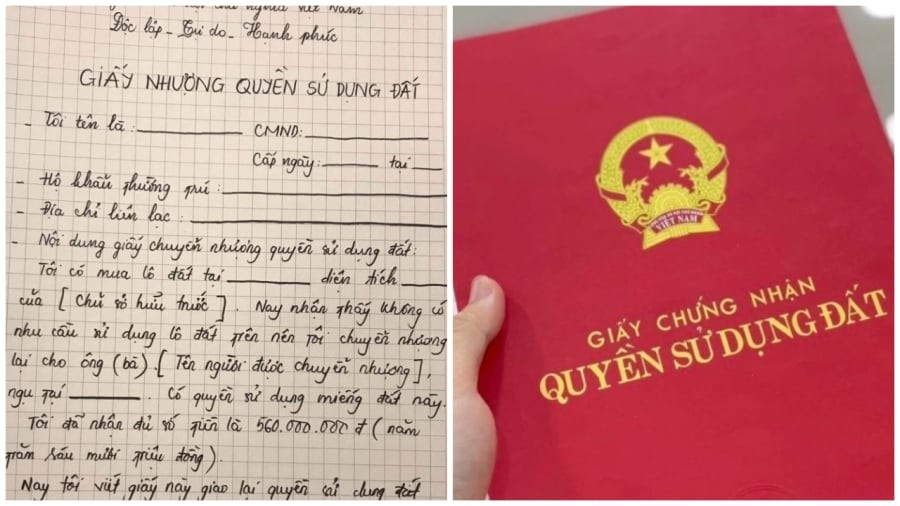 Độc lập - Tự do - Hạnh phúc
GIẤY NHƯỢNG QUYỀN SỬ DỤNG ĐẤT
- Tôi tên là: CMND:
Cấp ngày: tại
- Hộ khẩu thường trú:
- Địa chỉ liên lạc:
- Nội dung giấy chuyển nhượng quyền sử dụng đất:
Tôi có mua lô đất tại diện tích
của [Chủ sở hữu trước]. Nay nhận thấy không có
nhu cầu sử dụng lô đất trên nên tôi chuyển nhượng
lại cho ông (bà) [Tên người được chuyển nhượng],
ngụ tại . Có quyền sử dụng miếng đất này.
Tôi đã nhận đủ số tiền là 560.000.000 đ (năm
trăm sáu mươi triệu đồng).
Nay tôi viết giấy này giao lại quyền sử dụng đất
VIỆT NAM
GIẤY CHỨNG NHẬN
QUYỀN SỬ DỤNG ĐẤT